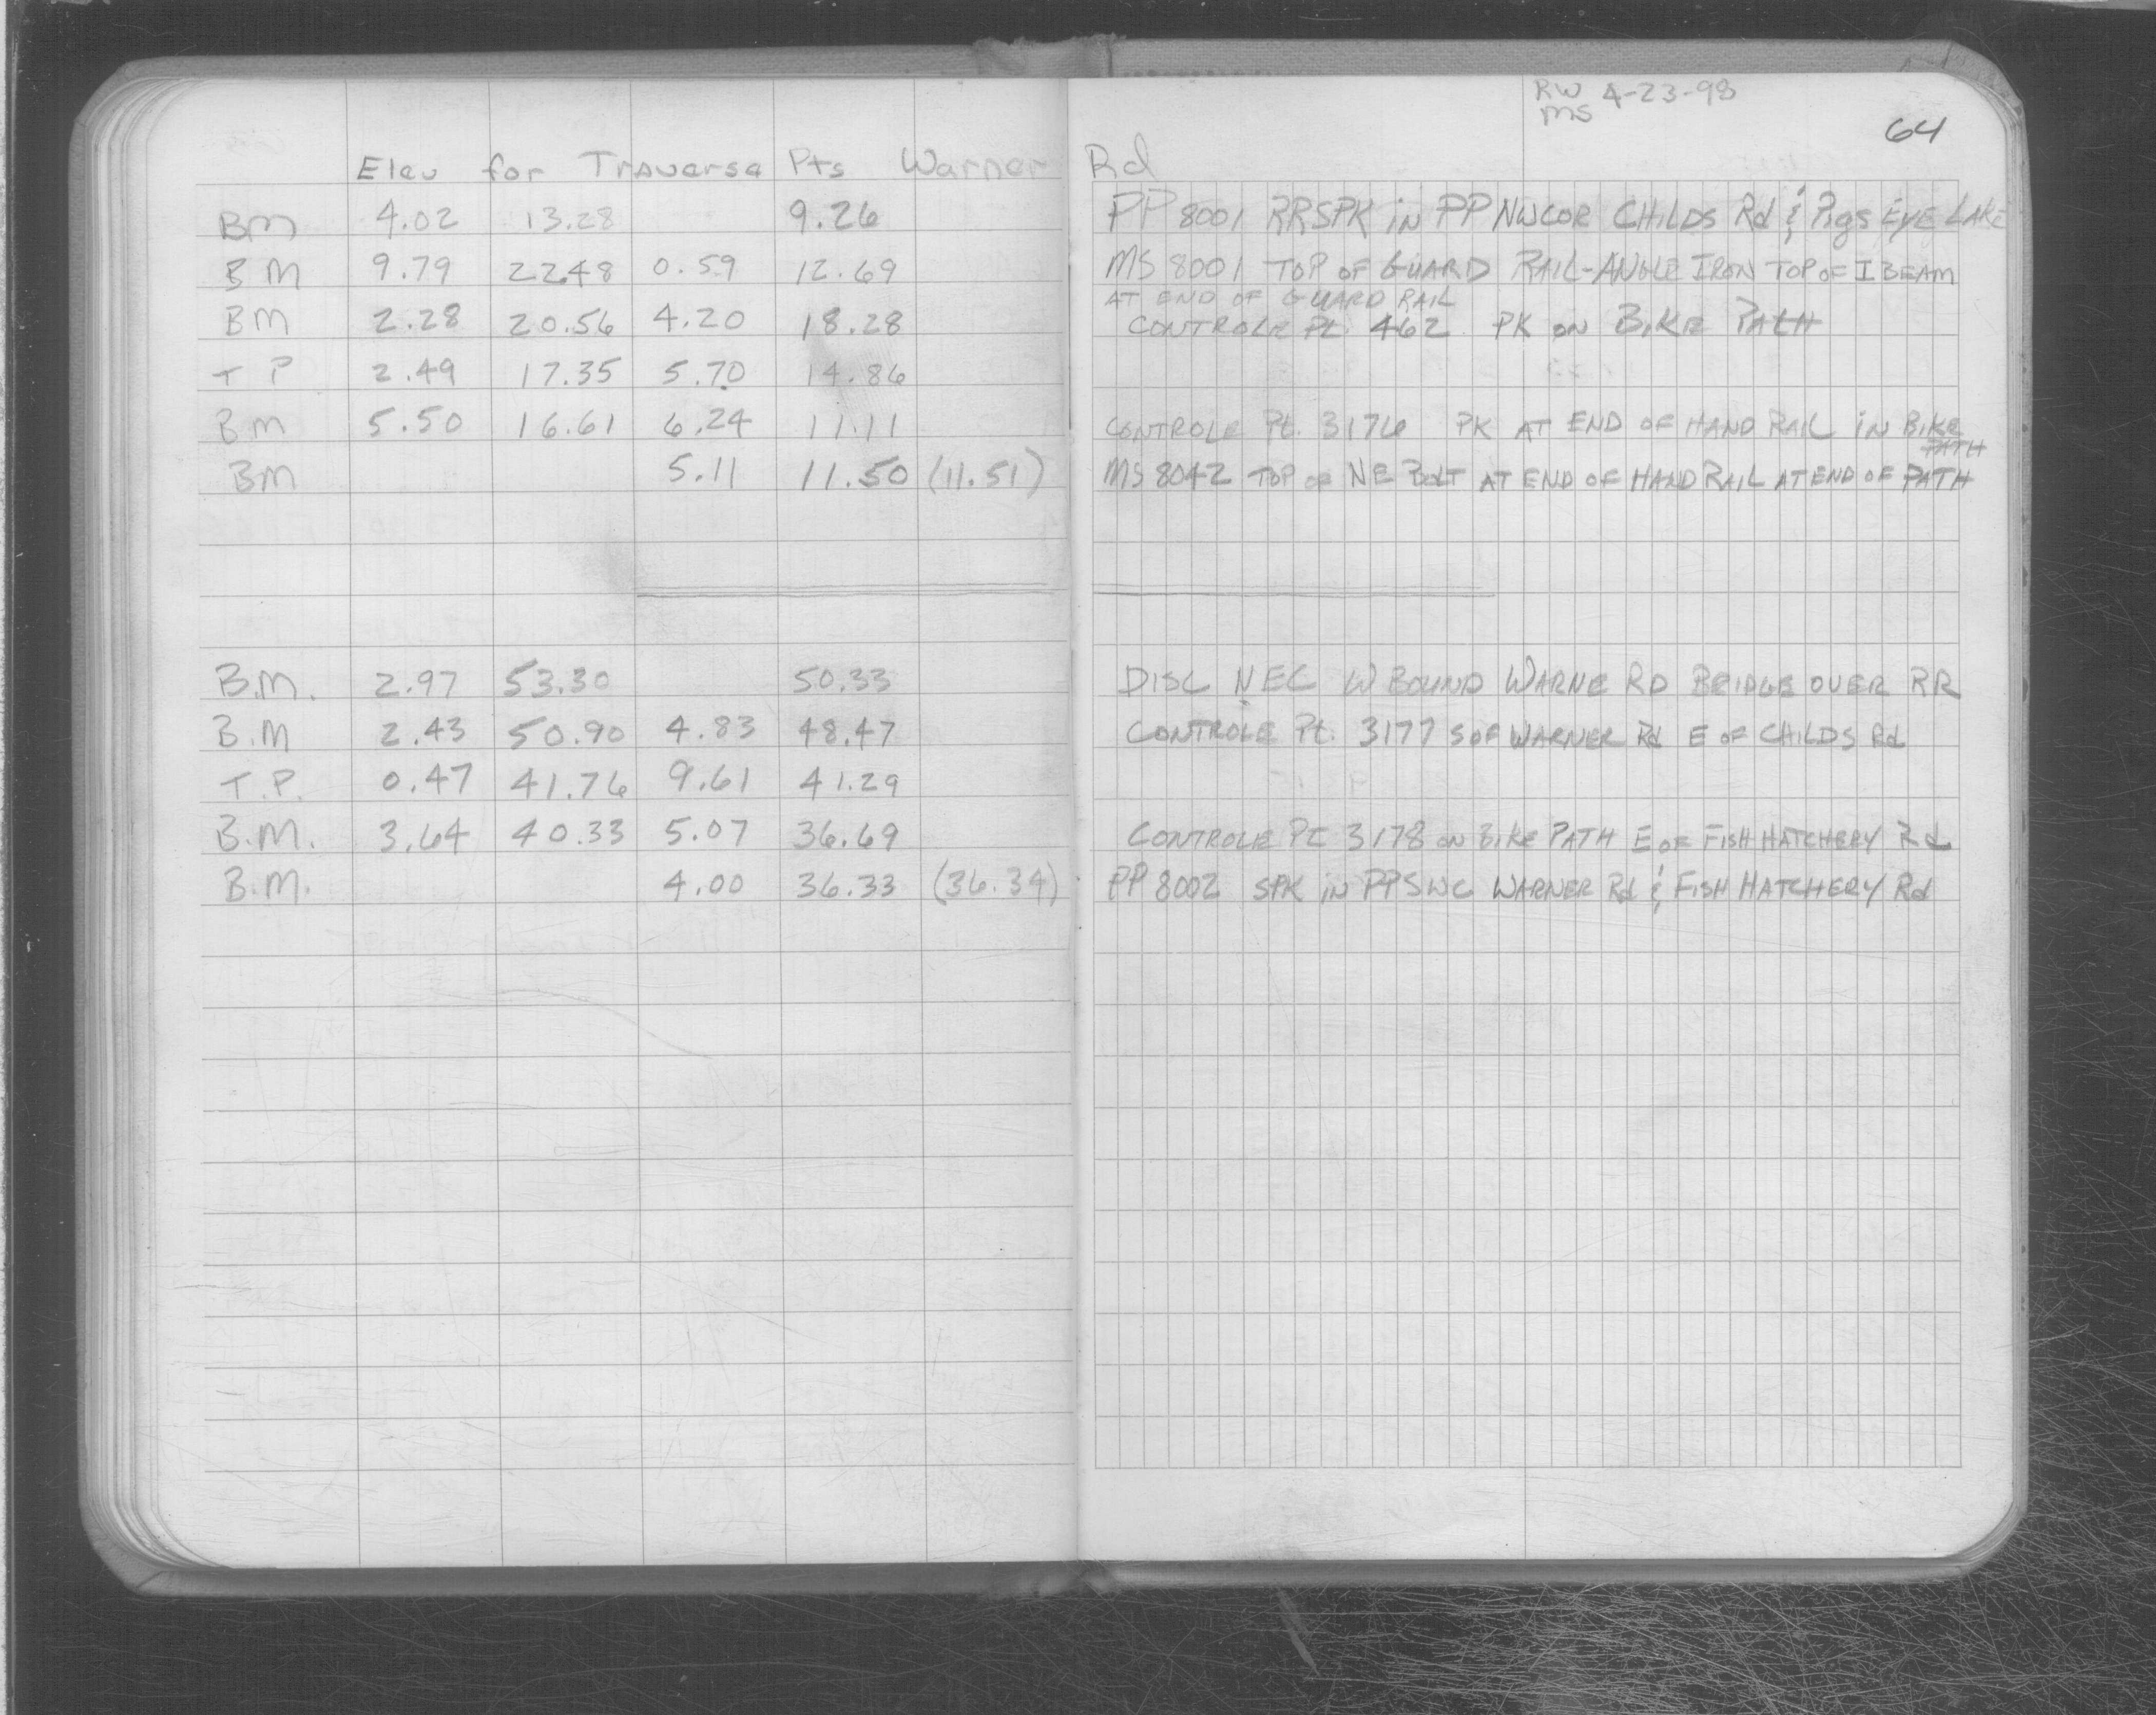 RW 4-23-98
MS
64
Elev for Traverse Pts Warner Rd
BM 4.02 13.28 9.26 PP 8001 RRSPK in PP NW COR CHILDS Rd & Pigs EYE LAKE
BM 9.79 22.48 0.59 12.69 MS 8001 TOP OF GUARD RAIL-ANGLE IRON TOP OF I BEAM
AT END OF GUARD RAIL
BM 2.28 20.56 4.20 18.28 CONTROLE Pt. 462 PK ON BIKE PATH
T P 2.49 17.35 5.70 14.86
BM 5.50 16.61 6.24 11.11 CONTROLE Pt. 3176 PK AT END OF HAND RAIL IN BIKE
PATH
BM 5.11 11.50 (11.51) MS 8042 TOP OF NE BOLT AT END OF HAND RAIL AT END OF PATH
B.M. 2.97 53.30 50.33 DISC NEC W BOUND WARNE RD BRIDGE OVER RR
B.M 2.43 50.90 4.83 48.47 CONTROLE Pt. 3177 S OF WARNER Rd E OF CHILDS Rd
T.P. 0.47 41.76 9.61 41.29
B.M. 3.64 40.33 5.07 36.69 CONTROLE Pt 3178 ON BIKE PATH E OF FISH HATCHERY Rd
B.M. 4.00 36.33 (36.34) PP 8002 SPK in PP SWC WARNER Rd & FISH HATCHERY Rd